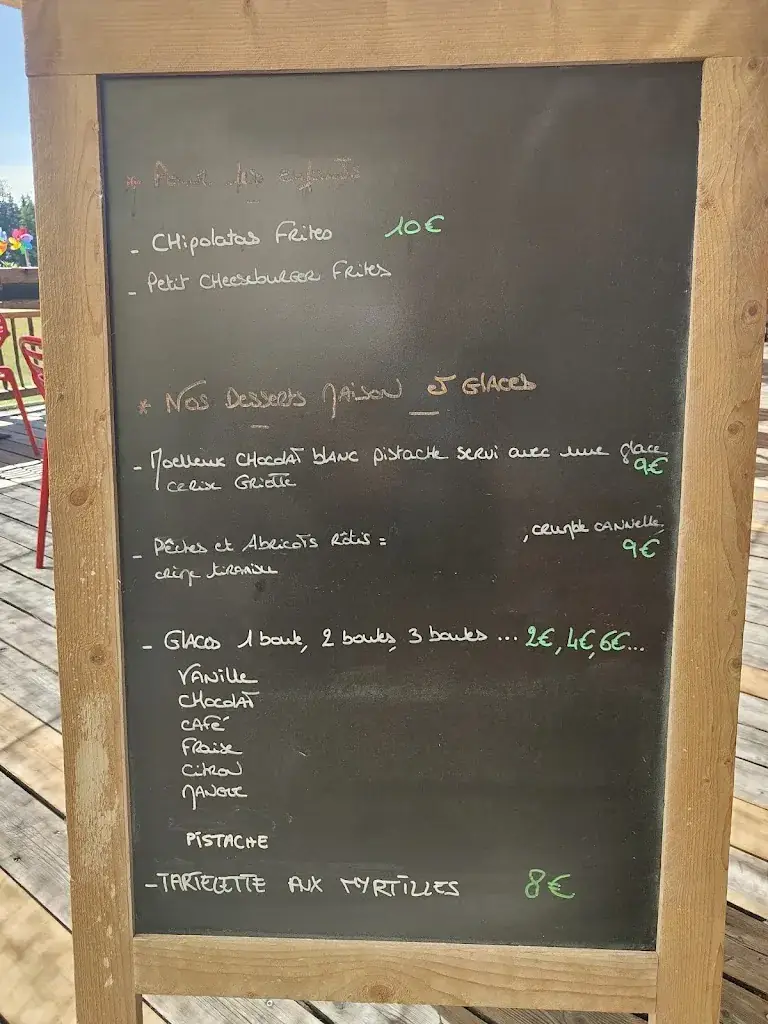 * Pour les enfants
- CHipolatas FRites 10€
- Petit CHeeseburger FRites
* Nos Desserts Maison et GLACES
- Moelleux CHocolat blanc pistache servi avec une glace 9€
cerise GRiotte
- Pêches et Abricots Rôtis = , CRumble CANNelle 9€
crème tiramisu
- GLACES 1 boule, 2 boules, 3 boules ... 2€, 4€, 6€...
VANille
CHocolAT
CAFé
FRaise
CitRoN
MANGUE
PiSTACHE
- TARTELETTE AUX MYRTILLES 8€